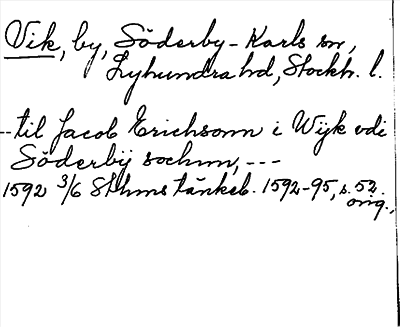 Vik, by, Söderby-Karls sn,
Lyhundra hd, Stockh. l.
--til Jacob Erichsonn i Wijk vdi
Söderbÿ sochnn, ---
1592 3/6 Sthms tänkeb. 1592-95, s. 52.
orig.,